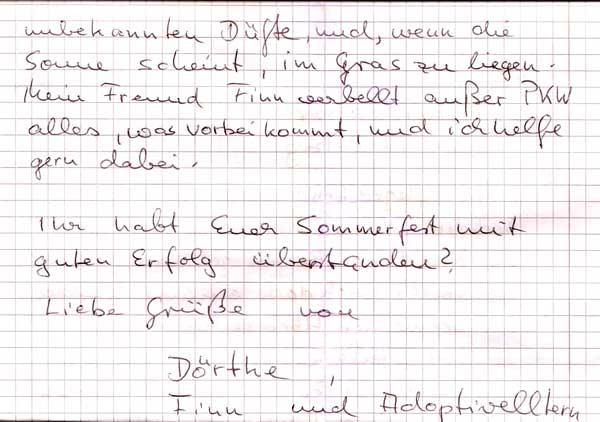 unbekannten Düfte, und, wenn die
Sonne scheint, im Gras zu liegen.
Mein Freund Finn verbellt außer PKW
alles, was vorbei kommt, und ich helfe
gern dabei.
Ihr habt Euer Sommerfest mit
guten Erfolg überstanden?
Liebe Grüße von
Dörthe,
Finn und Adoptivelltern